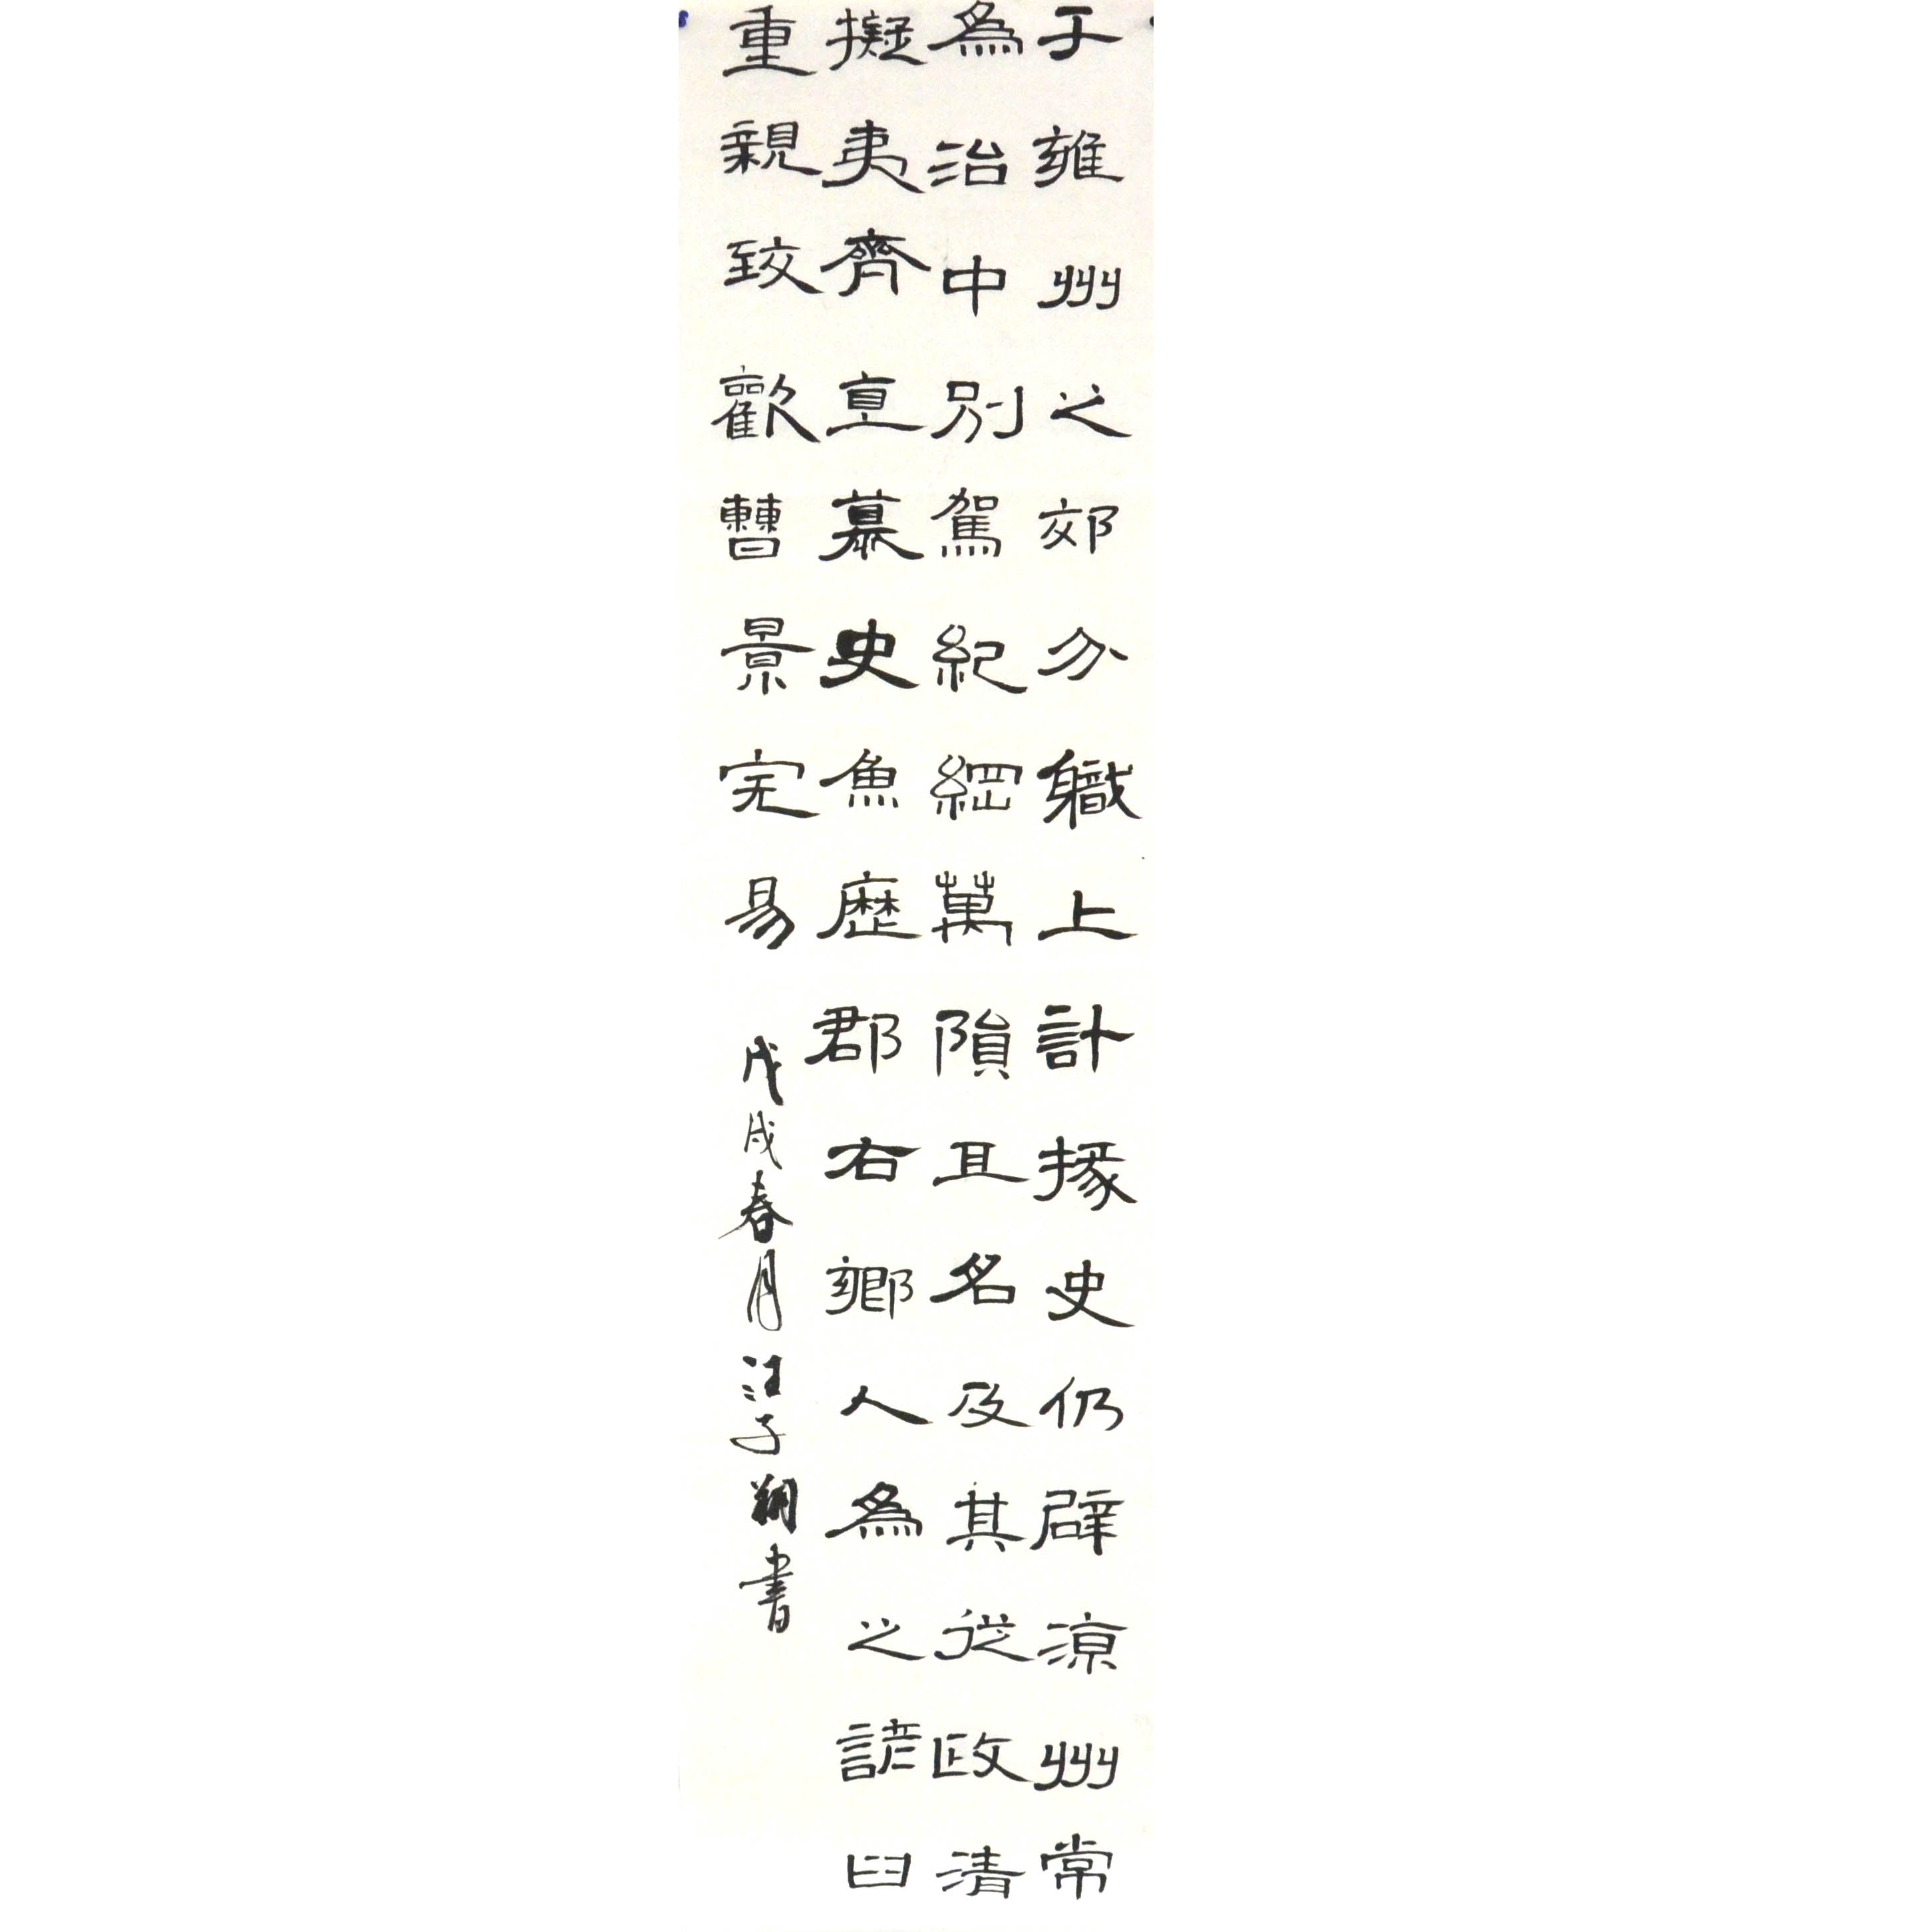 于雍州之郊分職上計掾史仍辟涼州常
為治中別駕紀綱萬隕且名及其從政清
擬夷齊直慕史魚歷郡右鄉人為之諺曰
重親致歡曹景完易 戊戌春月汪子翔書